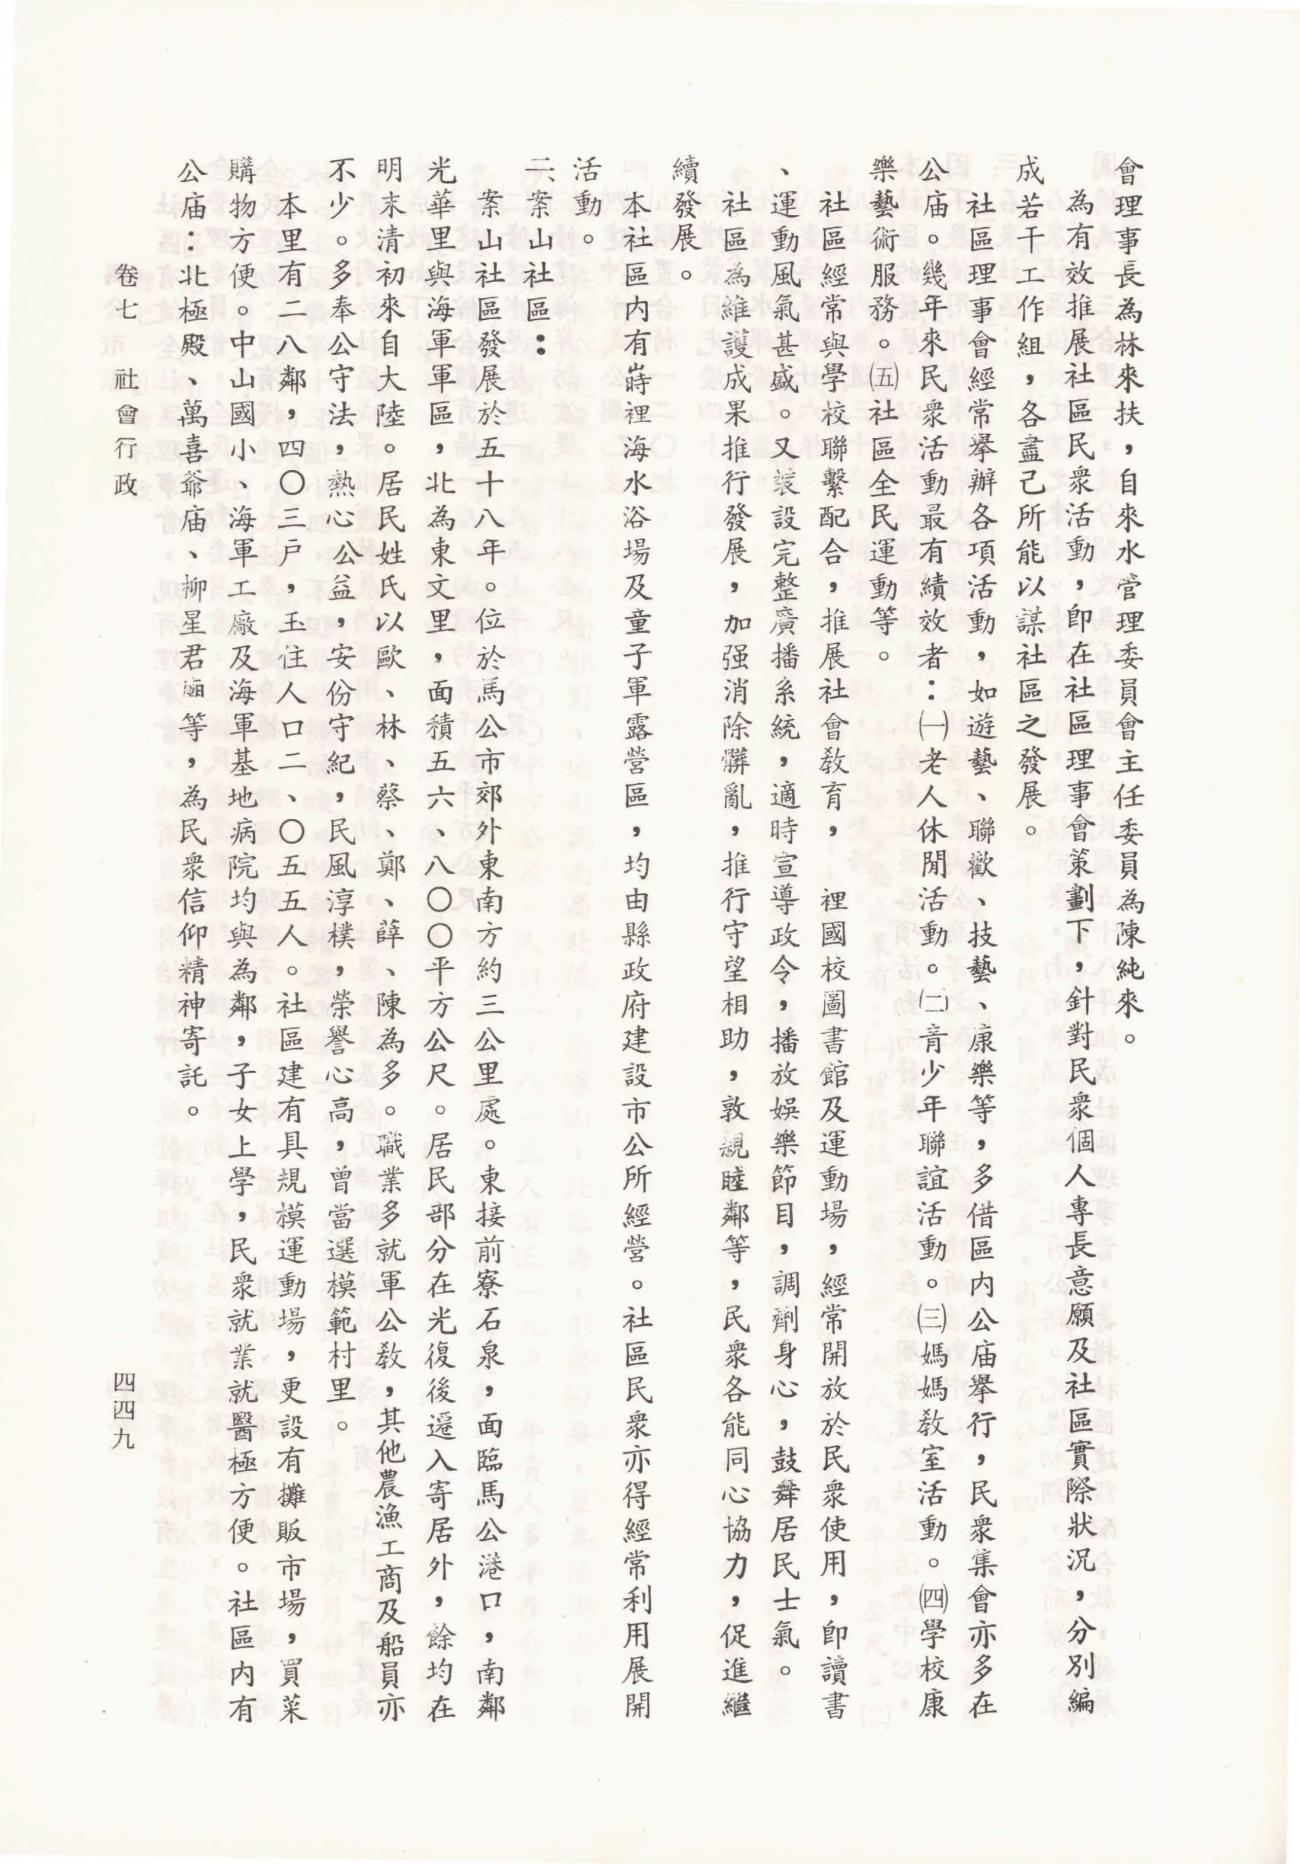 會理事長為林來扶，自來水管理委員會主任委員為陳純來。
為有效推展社區民衆活動，即在社區理事會策劃下，針對民衆個人專長意願及社區實際狀況，分別編
成若干工作組，各盡己所能以謀社區之發展。
社區理事會經常舉辦各項活動，如遊藝、聯歡、技藝、康樂等，多借區內公庙舉行，民衆集會亦多在
公庙。幾年來民衆活動最有績效者：㈠老人休閒活動。㈡青少年聯誼活動。㈢媽媽教室活動。㈣學校康
樂藝術服務。㈤社區全民運動等。
社區經常與學校聯繫配合，推展社會教育，　裡國校圖書館及運動場，經常開放於民衆使用，即讀書
、運動風氣甚盛。又裝設完整廣播系統，適時宣導政令，播放娛樂節目，調劑身心，鼓舞居民士氣。
社區為維護成果推行發展，加强消除髒亂，推行守望相助，敦親睦鄰等，民衆各能同心協力，促進繼
續發展。
本社區內有嵵裡海水浴場及童子軍露營區，均由縣政府建設市公所經營。社區民衆亦得經常利用展開
活動。
二、案山社區：
案山社區發展於五十八年。位於馬公市郊外東南方約三公里處。東接前寮石泉，面臨馬公港口，南鄰
光華里與海軍軍區，北為東文里，面積五六、八〇〇平方公尺。居民部分在光復後遷入寄居外，餘均在
明末清初來自大陸。居民姓氏以歐、林、蔡、鄭、薛、陳為多。職業多就軍公教，其他農漁工商及船員亦
不少。多奉公守法，熱心公益，安份守紀，民風淳樸，榮譽心高，曾當選模範村里。
本里有二八鄰，四〇三戶，王住人口二、〇五五人。社區建有具規模運動場，更設有攤販市場，買菜
購物方便。中山國小、海軍工廠及海軍基地病院均與為鄰，子女上學，民衆就業就醫極方便。社區內有
公庙：北極殿、萬喜爺庙、柳星君庙等，為民衆信仰精神寄託。
卷七　社會行政
四四九